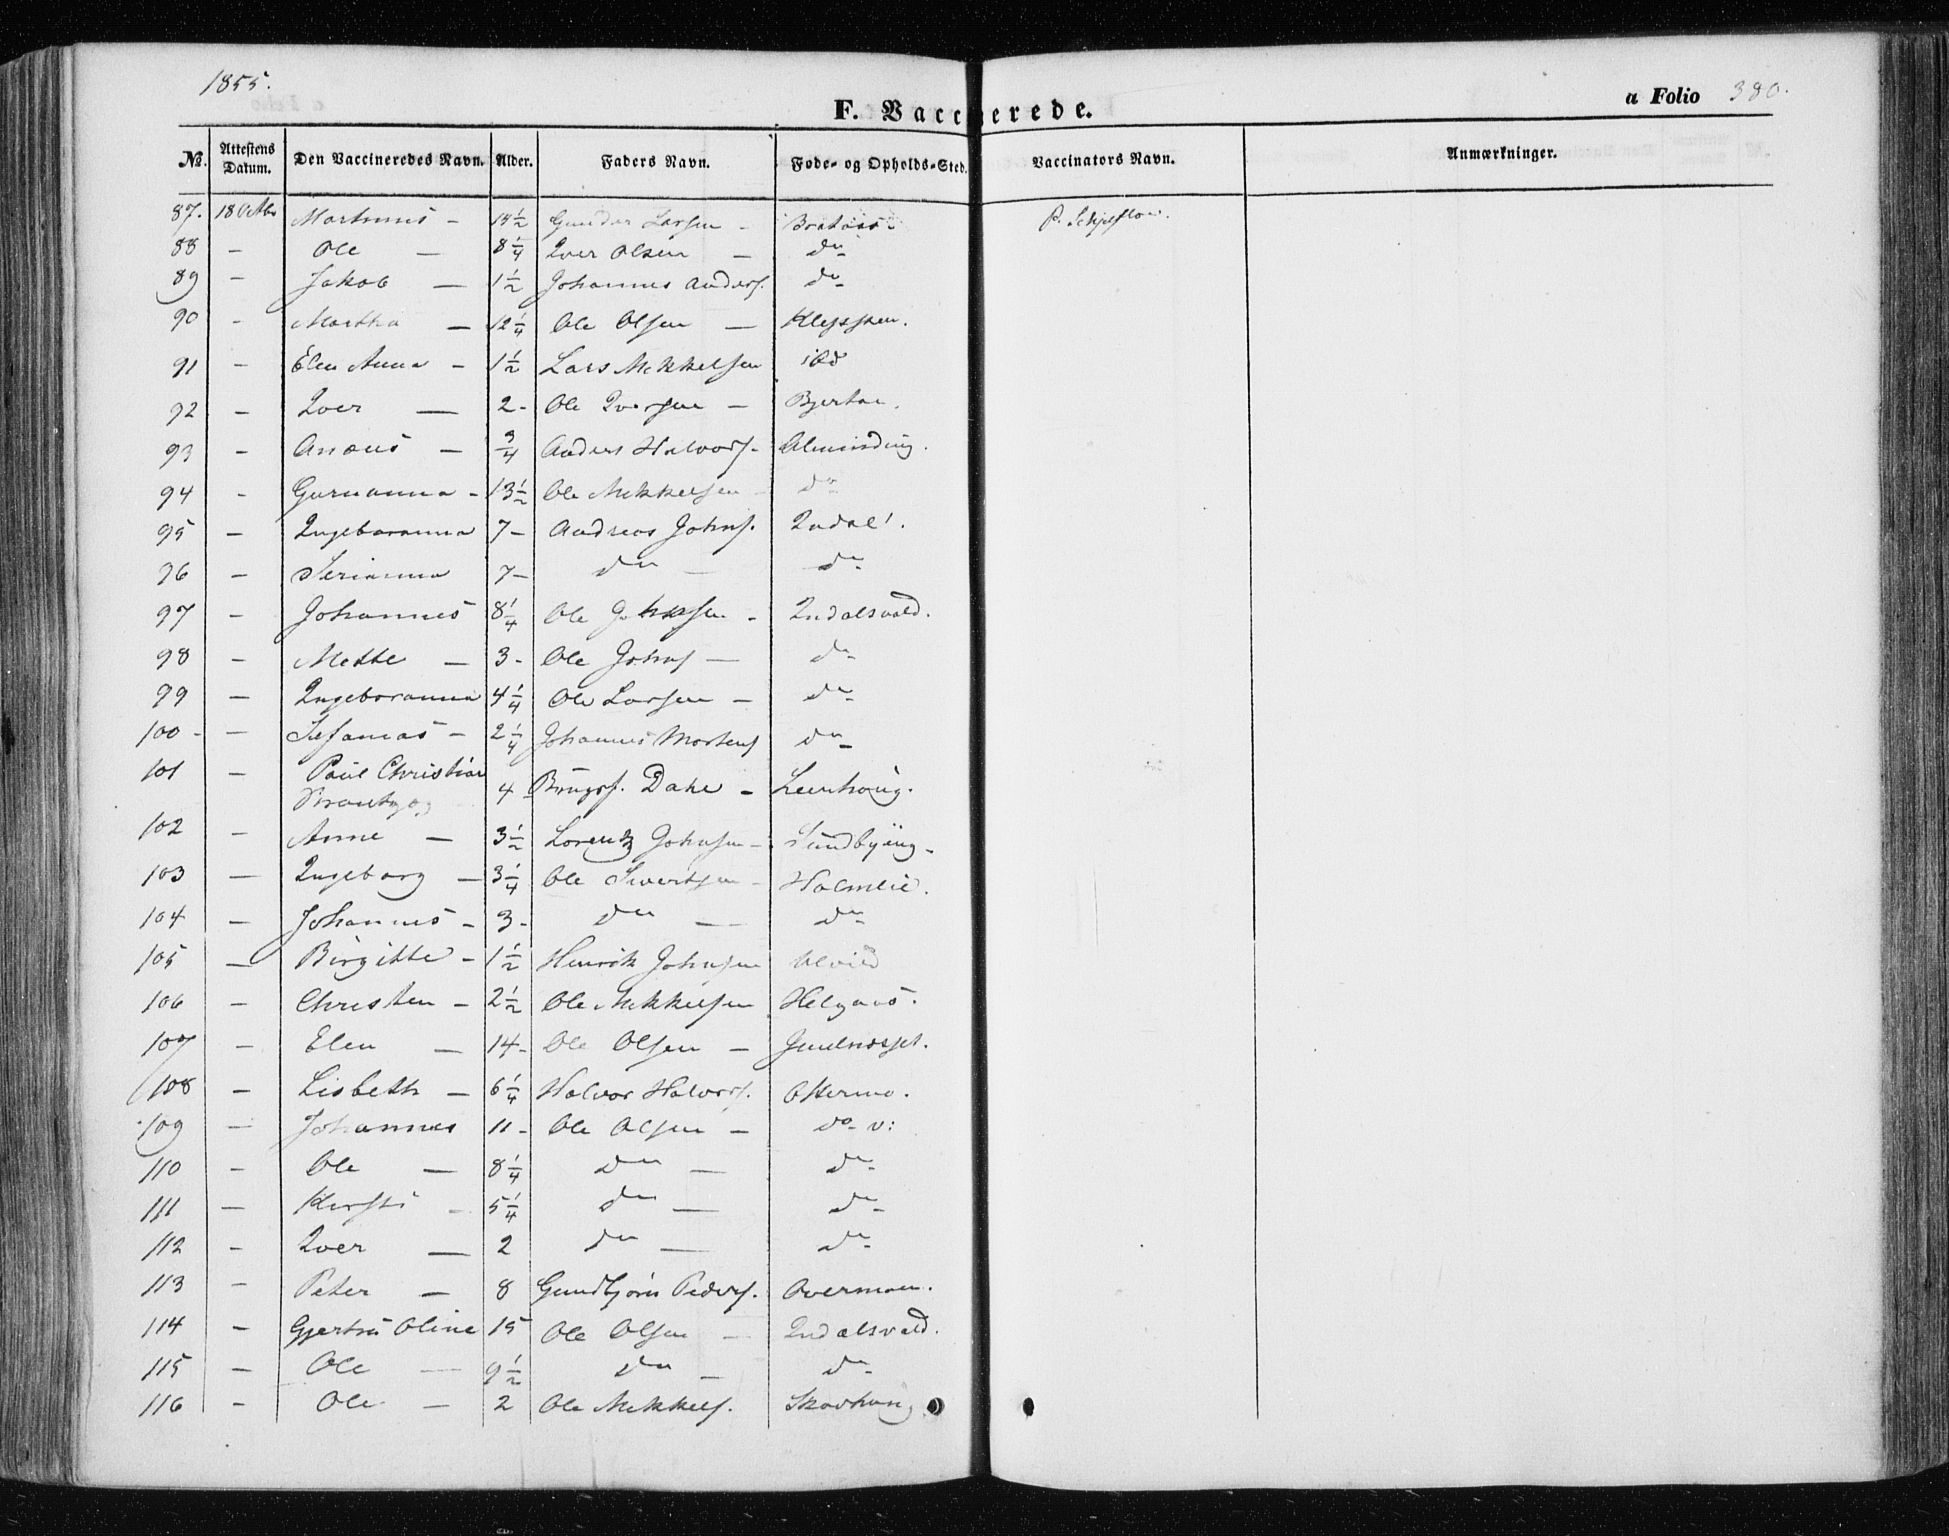 1855.
F. Vaccinerede.
a Folio 380.
No. Attestens Datum. Den Vaccineredes Navn. Alder. Faders Navn. Føde- og Opholds-Sted. Vaccinators Navn. Anmærkninger.
87. 18 Octbr Martinus - 14½ Gunder Larsen - P. Schjelflow.
88 - Ole - 8¼ Iver Olsen - do
89 - Jakob - 1½ Johannes Anders. do
90 - Martha - 12¼ Ole Olsen - Kleppen.
91 - Elen Anna - 1½ Lars Mikkelsen ibd
92 - Iver - 2 - Ole Iversen - Bjertan.
93 - Anæus - ¾ Anders Halvors. - Alminding.
94 - Gurianna - 13½ Ole Mikkelsen - do
95 - Ingeboranna 7 - Andreas Johns. Indal.
96 - Serianna 7 - do - do
97 - Johannes 8¼ Ole Johnsen - Indalsvald.
98 - Mette - 3 - Ole Johns - do
99 - Ingeboranna 4¼ Ole Larsen - do
100 - - Sefanias - 2¼ Johannes Mortens do
101 - Paul Christian
4 Brugsf. Dahl - Leerhoug.
102 - Anne - 3½ Lorentz Johnsen - Sundbyeng -
103 - Ingeborg - 3¼ Ole Sivertsen - Holmlie.
104 - Johannes - 3 - do - do
105 - Birgitte - 1½ Henrik Johnsen Ulvild
106 - Christen - 2½ Ole Mikkelsen Helgaas.
107 - Elen - 14 - Ole Olsen -
108 - Lisbeth - 6¼ Halvor Halvors. Ottermo.
109 - Johannes 11 - Ole Olsen - do v:
110 - Ole - 8¼ do - do
111 - Kirsti - 5¼ do - do
112 - Iver - 2 do - do
113 - Peter - 8 Gundbjørn Peders. Overmoen.
114 - Gjertru Oline 15 Ole Olsen - Indalsvald.
115 - Ole - 9½ do - do
116 - Ole - 2 Ole Mikkels. Skavhaug